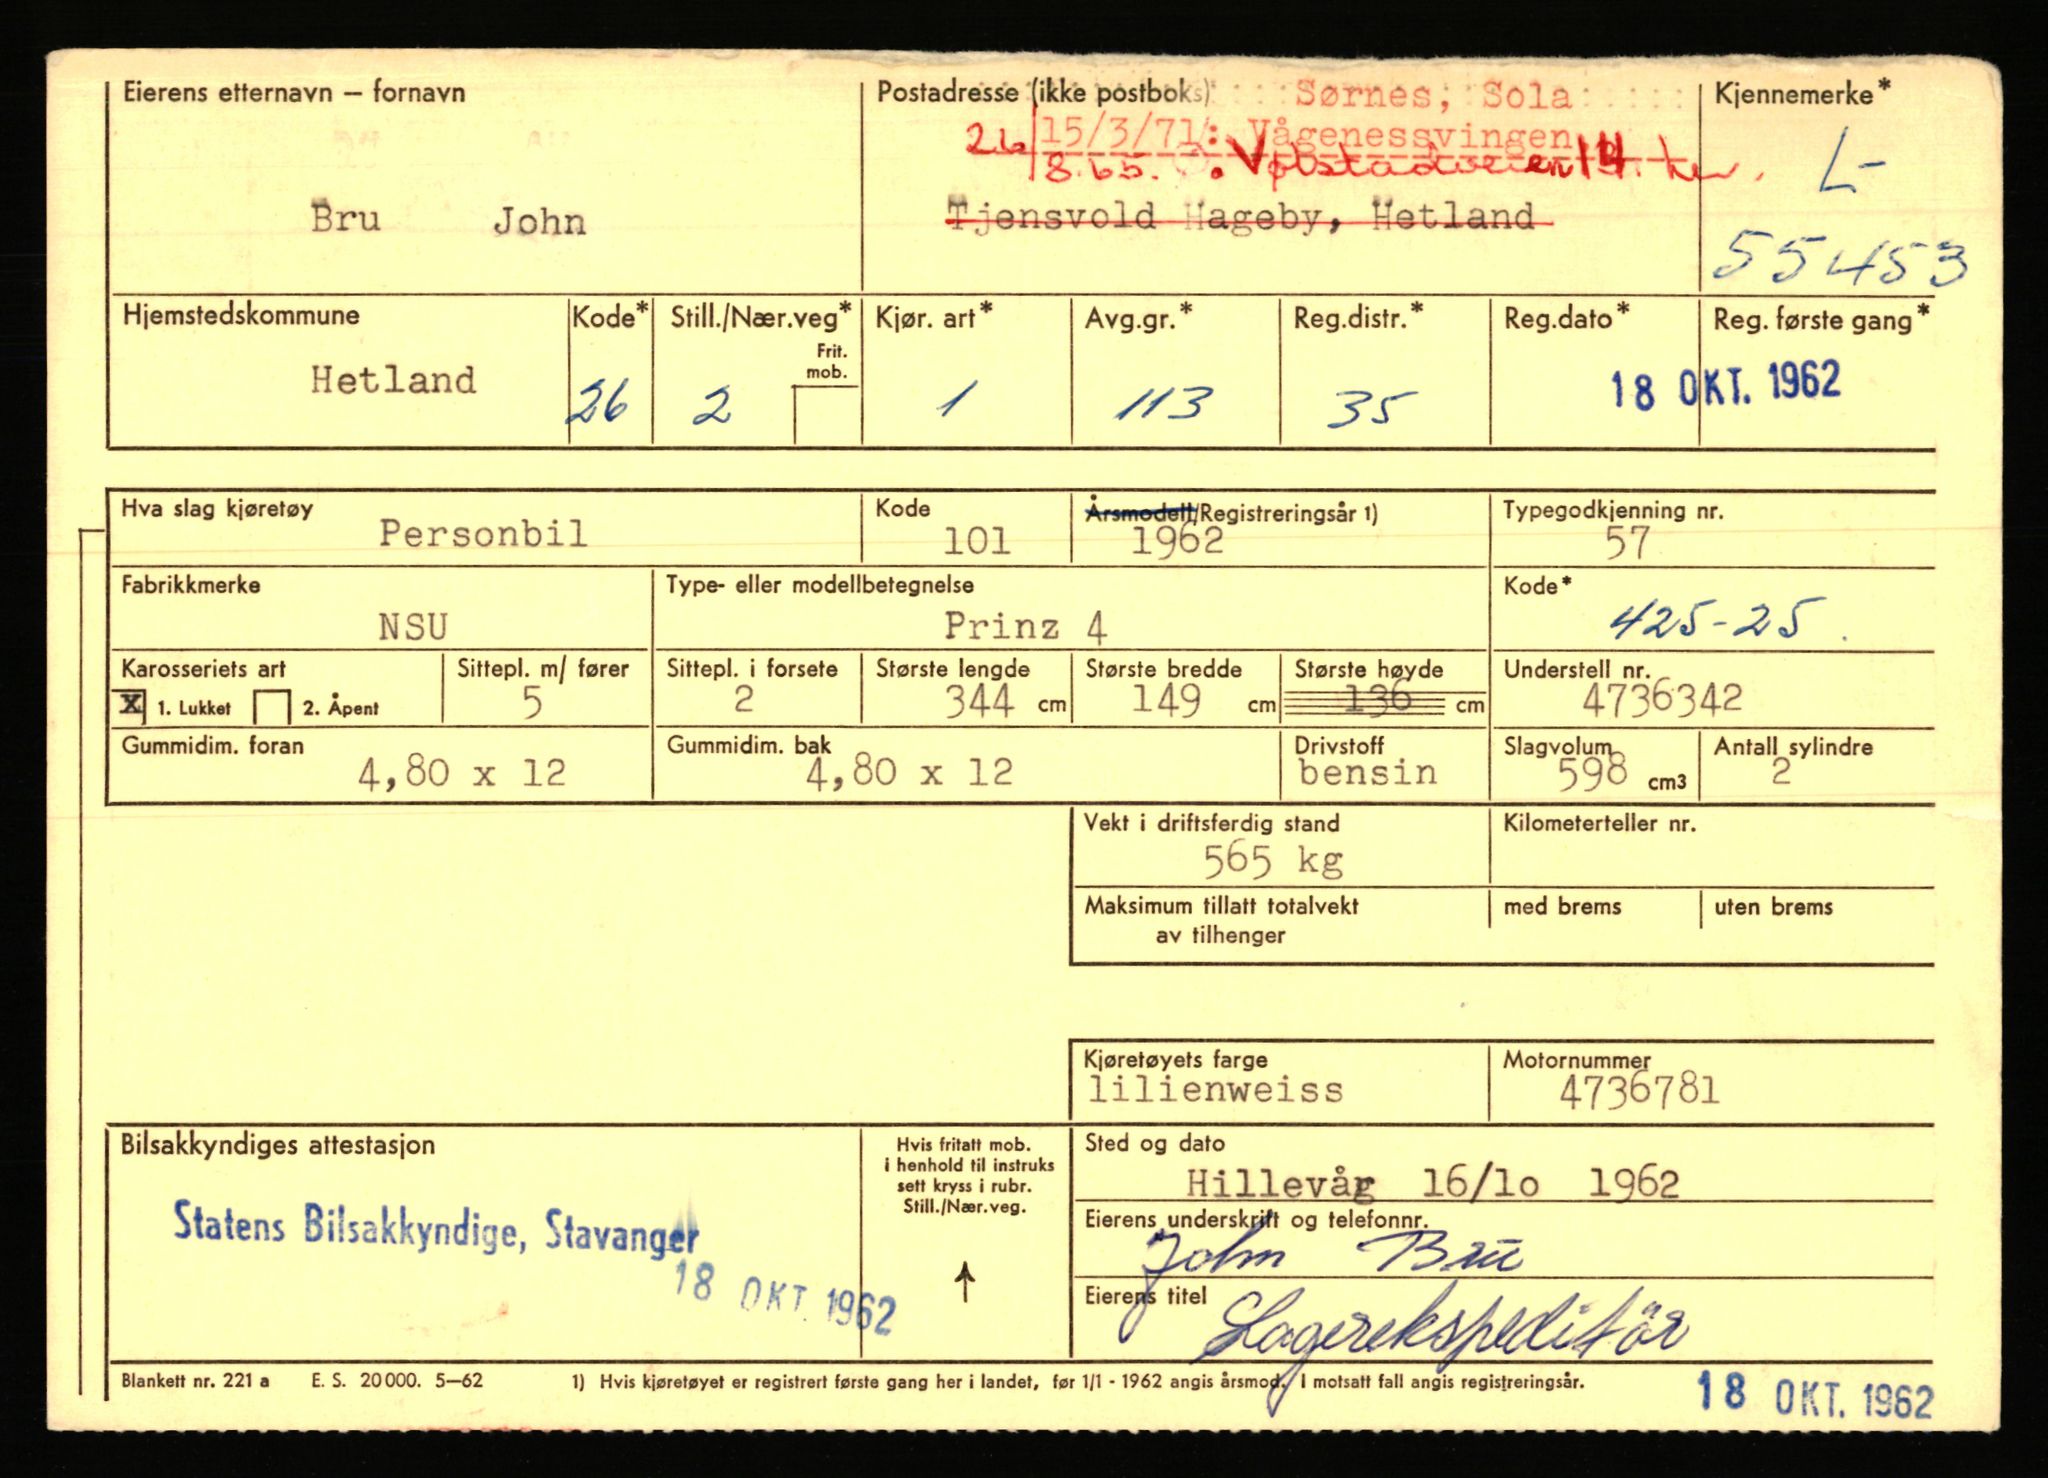 Eierens etternavn – fornavn
Bru John
Postadresse (ikke postboks) Sørnes, Sola
15/3/71: Vågenessvingen 14
26/8.65.
Tjensvold Hageby, Hetland
Kjennemerke*
L-
55453
Hjemstedskommune
Hetland
Kode*
26
Still./Nær.veg*
Frit. mob.
2
Kjør. art*
1
Avg.gr.*
113
Reg.distr.*
35
Reg.dato*
Reg. første gang*
18 OKT. 1962
Hva slag kjøretøy
Personbil
Kode
101
Årsmodell/Registreringsår 1)
1962
Typegodkjenning nr.
57
Fabrikkmerke
NSU
Type- eller modellbetegnelse
Prinz 4
Kode*
425-25
Karosseriets art
x 1. Lukket 2. Åpent
Sittepl. m/ fører
5
Sittepl. i forsete
2
Største lengde
344 cm
Største bredde
149 cm
Største høyde
136 cm
Understell nr.
4736342
Gummidim. foran
4,80 x 12
Gummidim. bak
4,80 x 12
Drivstoff
bensin
Slagvolum
598 cm3
Antall sylindre
2
Vekt i driftsferdig stand
565 kg
Kilometerteller nr.
Maksimum tillatt totalvekt
av tilhenger
med brems
uten brems
Kjøretøyets farge
lilienweiss
Motornummer
4736781
Bilsakkyndiges attestasjon
Statens Bilsakkyndige, Stavanger
18 OKT. 1962
Hvis fritatt mob.
i henhold til instruks
sett kryss i rubr.
Still./Nær.veg.
Sted og dato
Hillevåg 16/10 1962
Eierens underskrift og telefonnr.
John Bru
Eierens titel
Lagerekspeditör
Blankett nr. 221 a E. S. 20000. 5–62 1) Hvis kjøretøyet er registrert første gang her i landet, før 1/1 - 1962 angis årsmod. I motsatt fall angis registreringsår.
18 OKT. 1962